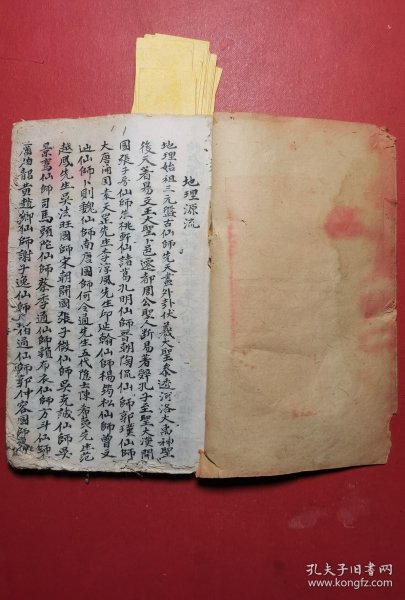 地理源流
地理始祖三元盤古仙師先天畫外卦伏羲大聖泰逵河洛大禹神聖
後天著易文王大聖卜邑遷都周公聖人斷易著辭孔子至聖大漢開
國張子房仙師赤桃軒仙諸葛孔明仙師晉朝陶侃仙師郭璞仙師
大唐開國袁天罡先生李淳風先生邱延翰仙師楊筠松仙師曾文
辿仙師卜則巍仙師南唐國師何令通先生五代隱士陳希夷先生范
越鳳先生吳法旺國師宋朝開國張子微仙師吳克誠仙師吳
景鸾仙師司馬頭陀仙師蔡季通仙師賴布衣仙師方斗仙師
蕭伯韶黃趙卿仙師謝子逸仙師過仙師郭仲容國師
孔夫子旧书网
www.kongfz.com